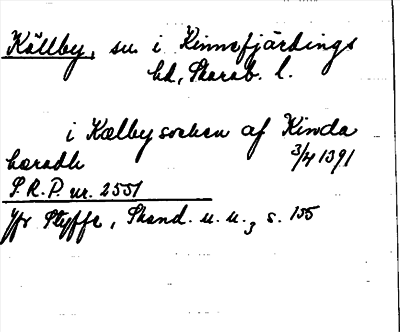 Källby, sn i Kinnefjärdings
hd, Skarab. l.
i Kælby socken af Kinda
hæradh 3/4 1391
S.R.P. nr. 2551
Jfr Styffe, Skand. u. u.3 s. 155